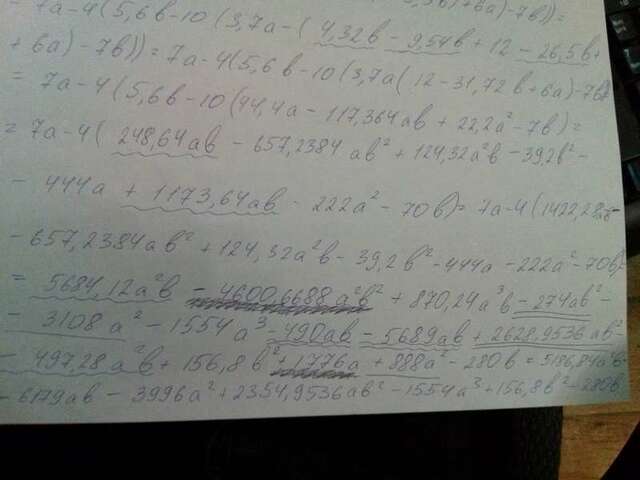 7a-4(5,6b-10(3,7a-(4,32b-9,54b+12-26,5b+
+6a)-7b))=7a-4(5,6b-10(3,7a(12-31,72b+6a)-7b))
=7a-4(5,6b-10(44,4a-117,364ab+22,2a²-7b)=
=7a-4(248,64ab-657,2384ab²+124,32a²b-39,2b²-
-444a+1173,64ab-222a²-70b)=7a-4(1422,28ab-
-657,2384ab²+124,32a²b-39,2b²-444a-222a²-70b)
=5684,12a²b-4600,6688a²b²+870,24a³b-274ab²-
-3108a²-1554a³-490ab-5689ab+2628,9536ab²
-497,28a²b+156,8b²+1776a+888a²-280b=5186,84a²b-
-6179ab-3996a²+2354,9536ab²-1554a³+156,8b²-280b